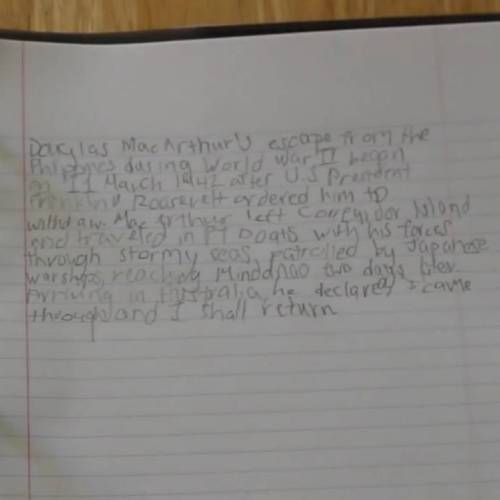 Douglas MacArthur's escape from the
Philppones during World War II began
on 11 March 1942 after U.S President
Franklind Roosevelt ordered him to
withdraw. Mac Arthur left Corregidor Island
and traveled in PT boats with his forces
through stormy seas, patrolled by Japanese
warships, reaching Mindanao two days later.
Arriving in Australia, he declared I came
through and I shall return